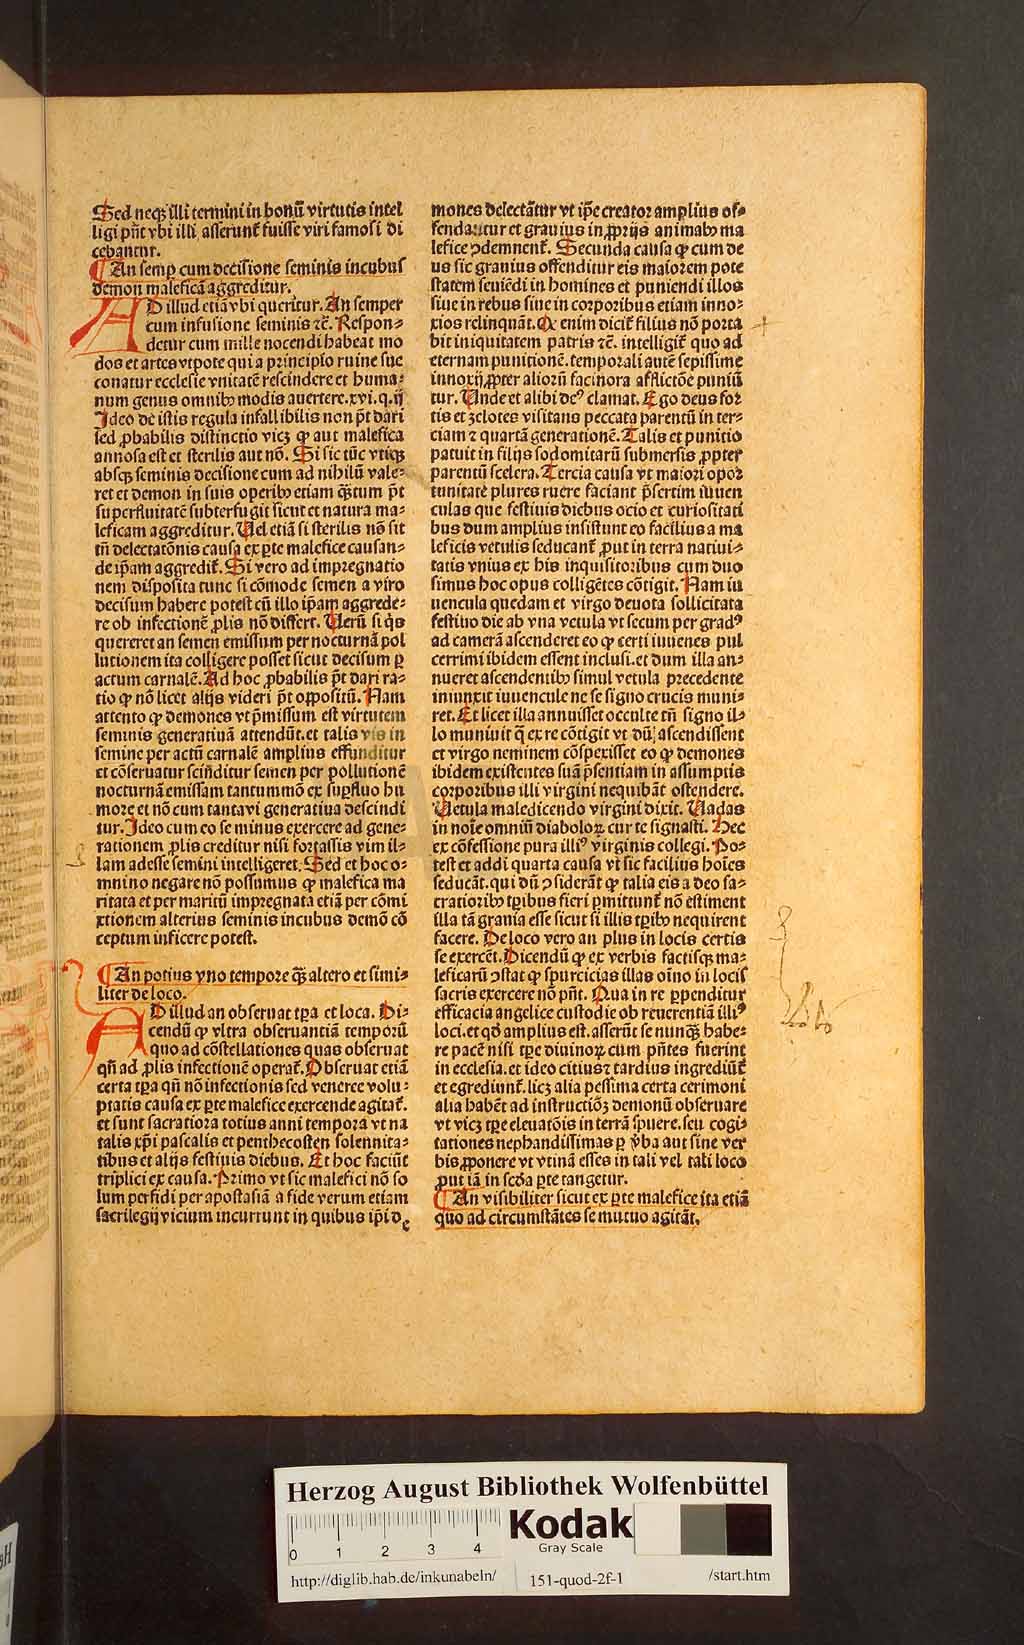 Sed neqꝫ illi termini in bonū virtutis intel
ligi pn̄t vbi illi asserunt̄ fuisse viri famosi di
cebantur.
An semꝑ cum decisione seminis incubus
demon maleficā aggreditur.
AD illud etiā vbi queritur. An semper
cum infusione seminis ⁊c̄. Respon⸗
detur cum mille nocendi habeat mo
dos et artes vtpote qui a principio ruine sue
conatur ecclesie vnitatē rescindere et huma⸗
num genus omnibꝰ modis auertere. xvi. q. ij
Ideo de istis regula infallibilis non pōt dari
sed ꝓbabilis distinctio vicꝫ ꝙ aut malefica
annosa est et sterilis aut nō. Si sic tūc vtiqꝫ
absqꝫ seminis decisione cum ad nihilū vale⸗
ret et demon in suis operibꝰ etiam qꝫtum pōt
superfluitatē subterfugit sicut et natura ma⸗
leficam aggreditur. Uel etiā si sterilis nō sit
tn̄ delectatōnis causa ex ꝑte malefice causan⸗
de ip̄am aggredit̄. Si vero ad impregnatio
nem disposita tunc si cōmode semen a viro
decisum habere potest cū illo ip̄am aggrede⸗
re ob infectionē ꝓlis nō differt. Uerū si q̄s
quereret an semen emissum per nocturnā pol
lutionem ita colligere posset sicut decisum ꝑ
actum carnalē. Ad hoc ꝓbabilis pōt dari ra⸗
tio ꝙ nō licet alijs videri pōt oppositū. Nam
attento ꝙ demones vt p̄missum est virtutem
seminis generatiuā attendūt. et talis vis in
semine per actū carnalē amplius effunditur
et cōseruatur scīnditur semen per pollutionē
nocturnā emissam tantummō ex suꝑfluo hu
more et nō cum tanta vi generatiua descindi
tur. Ideo cum eo se minus exercere ad gene⸗
rationem ꝓlis creditur nisi fortassis vim il⸗
lam adesse semini intelligeret. Sed et hoc o⸗
mnino negare nō possumus ꝙ malefica ma
ritata et per maritū impregnata etiā per cōmi
xtionem alterius seminis incubus demō cō
ceptum inficere potest.
An potius vno tempore qꝫ altero et simi⸗
liter de loco.
AD illud an obseruat tꝑa et loca. Di⸗
cendū ꝙ vltra obseruantiā temporū
quo ad cōstellationes quas obseruat
qn̄ ad ꝓlis infectionē operat̄. Obseruat etiā
certa tꝑa qn̄ nō infectionis sed veneree volu⸗
ptatis causa ex ꝑte malefice exercende agitat̄.
et sunt sacratiora totius anni tempora vt na
talis xp̄i pascalis et penthecosten solennita⸗
tibus et alijs festiuis diebus. Et hoc faciūt
triplici ex causa. Primo vt sic malefici nō so
lum perfidi per apostasiā a fide verum etiam
sacrilegij vicium incurrunt in quibus ip̄i de
mones delectātur vt ip̄e creator amplius of⸗
fendantur et grauius in ꝓprijs animabꝰ ma
lefice ꝯdemnent̄. Secunda causa ꝙ cum de
us sic grauius offenditur eis maiorem pote
statem seuiēdi in homines et puniendi illos
siue in rebus siue in corporibus etiam inno⸗
xios relinquāt. Qꝫ enim dicit̄ filius nō porta
bit iniquitatem patris ⁊c̄. intelligit̄ quo ad
eternam punitionē. temporali autē sepissime
innoxij ꝓpter aliorū facinora afflictōe puniū
tur. Unde et alibi deꝰ clamat. Ego deus for
tis et zelotes visitans peccata parentū in ter⸗
ciam ⁊ quartā generationē. Talis et punitio
patuit in filijs sodomitarū submersis ꝓpter
parentū scelera. Tercia causa vt maiori opor
tunitatē plures ruere faciant p̄sertim iuuen
culas que festiuis diebus ocio et curiositati
bus dum amplius insistunt eo facilius a ma
leficis vetulis seducant̄ ꝓut in terra natiui⸗
tatis vnius ex his inquisitoribus cum duo
simus hoc opus colligētes cōtigit. Nam iu
uencula quedam et virgo deuota sollicitata
festiuo die ab vna vetula vt secum per gradꝰ
ad camerā ascenderet eo ꝙ certi iuuenes pul
cerrimi ibidem essent inclusi. et dum illa an⸗
nueret ascendentibꝰ simul vetula precedente
iniunxit iuuencule ne se signo crucis muni⸗
ret. Et licet illa annuisset occulte tn̄ signo il⸗
lo muniuit q̄ ex re cōtigit vt dū ascendissent
et virgo neminem cōspexisset eo ꝙ demones
ibidem existentes suā p̄sentiam in assumptis
corporibus illi virgini nequibāt ostendere.
Uetula maledicendo virgini dixit. Uadas
in noīe omniū diaboloꝝ cur te signasti. Hec
ex cōfessione pura illiꝰ virginis collegi. Po⸗
test et addi quarta causa vt sic facilius hoīes
seducāt. qui dū ꝯsiderāt ꝙ talia eis a deo sa⸗
cratioribꝰ tꝑibus fieri ꝑmittunt̄ nō estiment
illa tā grauia esse sicut si illis tꝑibꝰ nequirent
facere. De loco vero an plus in locis certis
se exercēt. Dicendū ꝙ ex verbis factisqꝫ ma⸗
leficarū ꝯstat ꝙ spurcicias illas oīno in locis
sacris exercere nō pn̄t. Qua in re ꝑpenditur
efficacia angelice custodie ob reuerentiā illiꝰ
loci. et qd̄ amplius est. asserūt se nunqꝫ habe⸗
re pacē nisi tꝑe diuinoꝝ cum pn̄tes fuerint
in ecclesia. et ideo citius ⁊ tardius ingrediūt̄
et egrediunt̄. licꝫ alia pessima certa cerimoni
alia habēt ad instructiōꝫ demonū obseruare
vt vicꝫ tꝑe eleuatōis in terrā spuere. seu cogi⸗
tationes nephandissimas ꝑ v̄ba aut sine ver
bis ꝓponere vt vtinā esses in tali vel tali loco
ꝓut iā in scd̄a ꝑte tangetur.
An visibiliter sicut ex ꝑte malefice ita etiā
quo ad circumstātes se mutuo agitāt.
Herzog August Bibliothek Wolfenbüttel
0 1 2 3 4
Kodak
Gray Scale
http://diglib.hab.de/inkunabeln/ 151-quod-2f-1 /start.htm